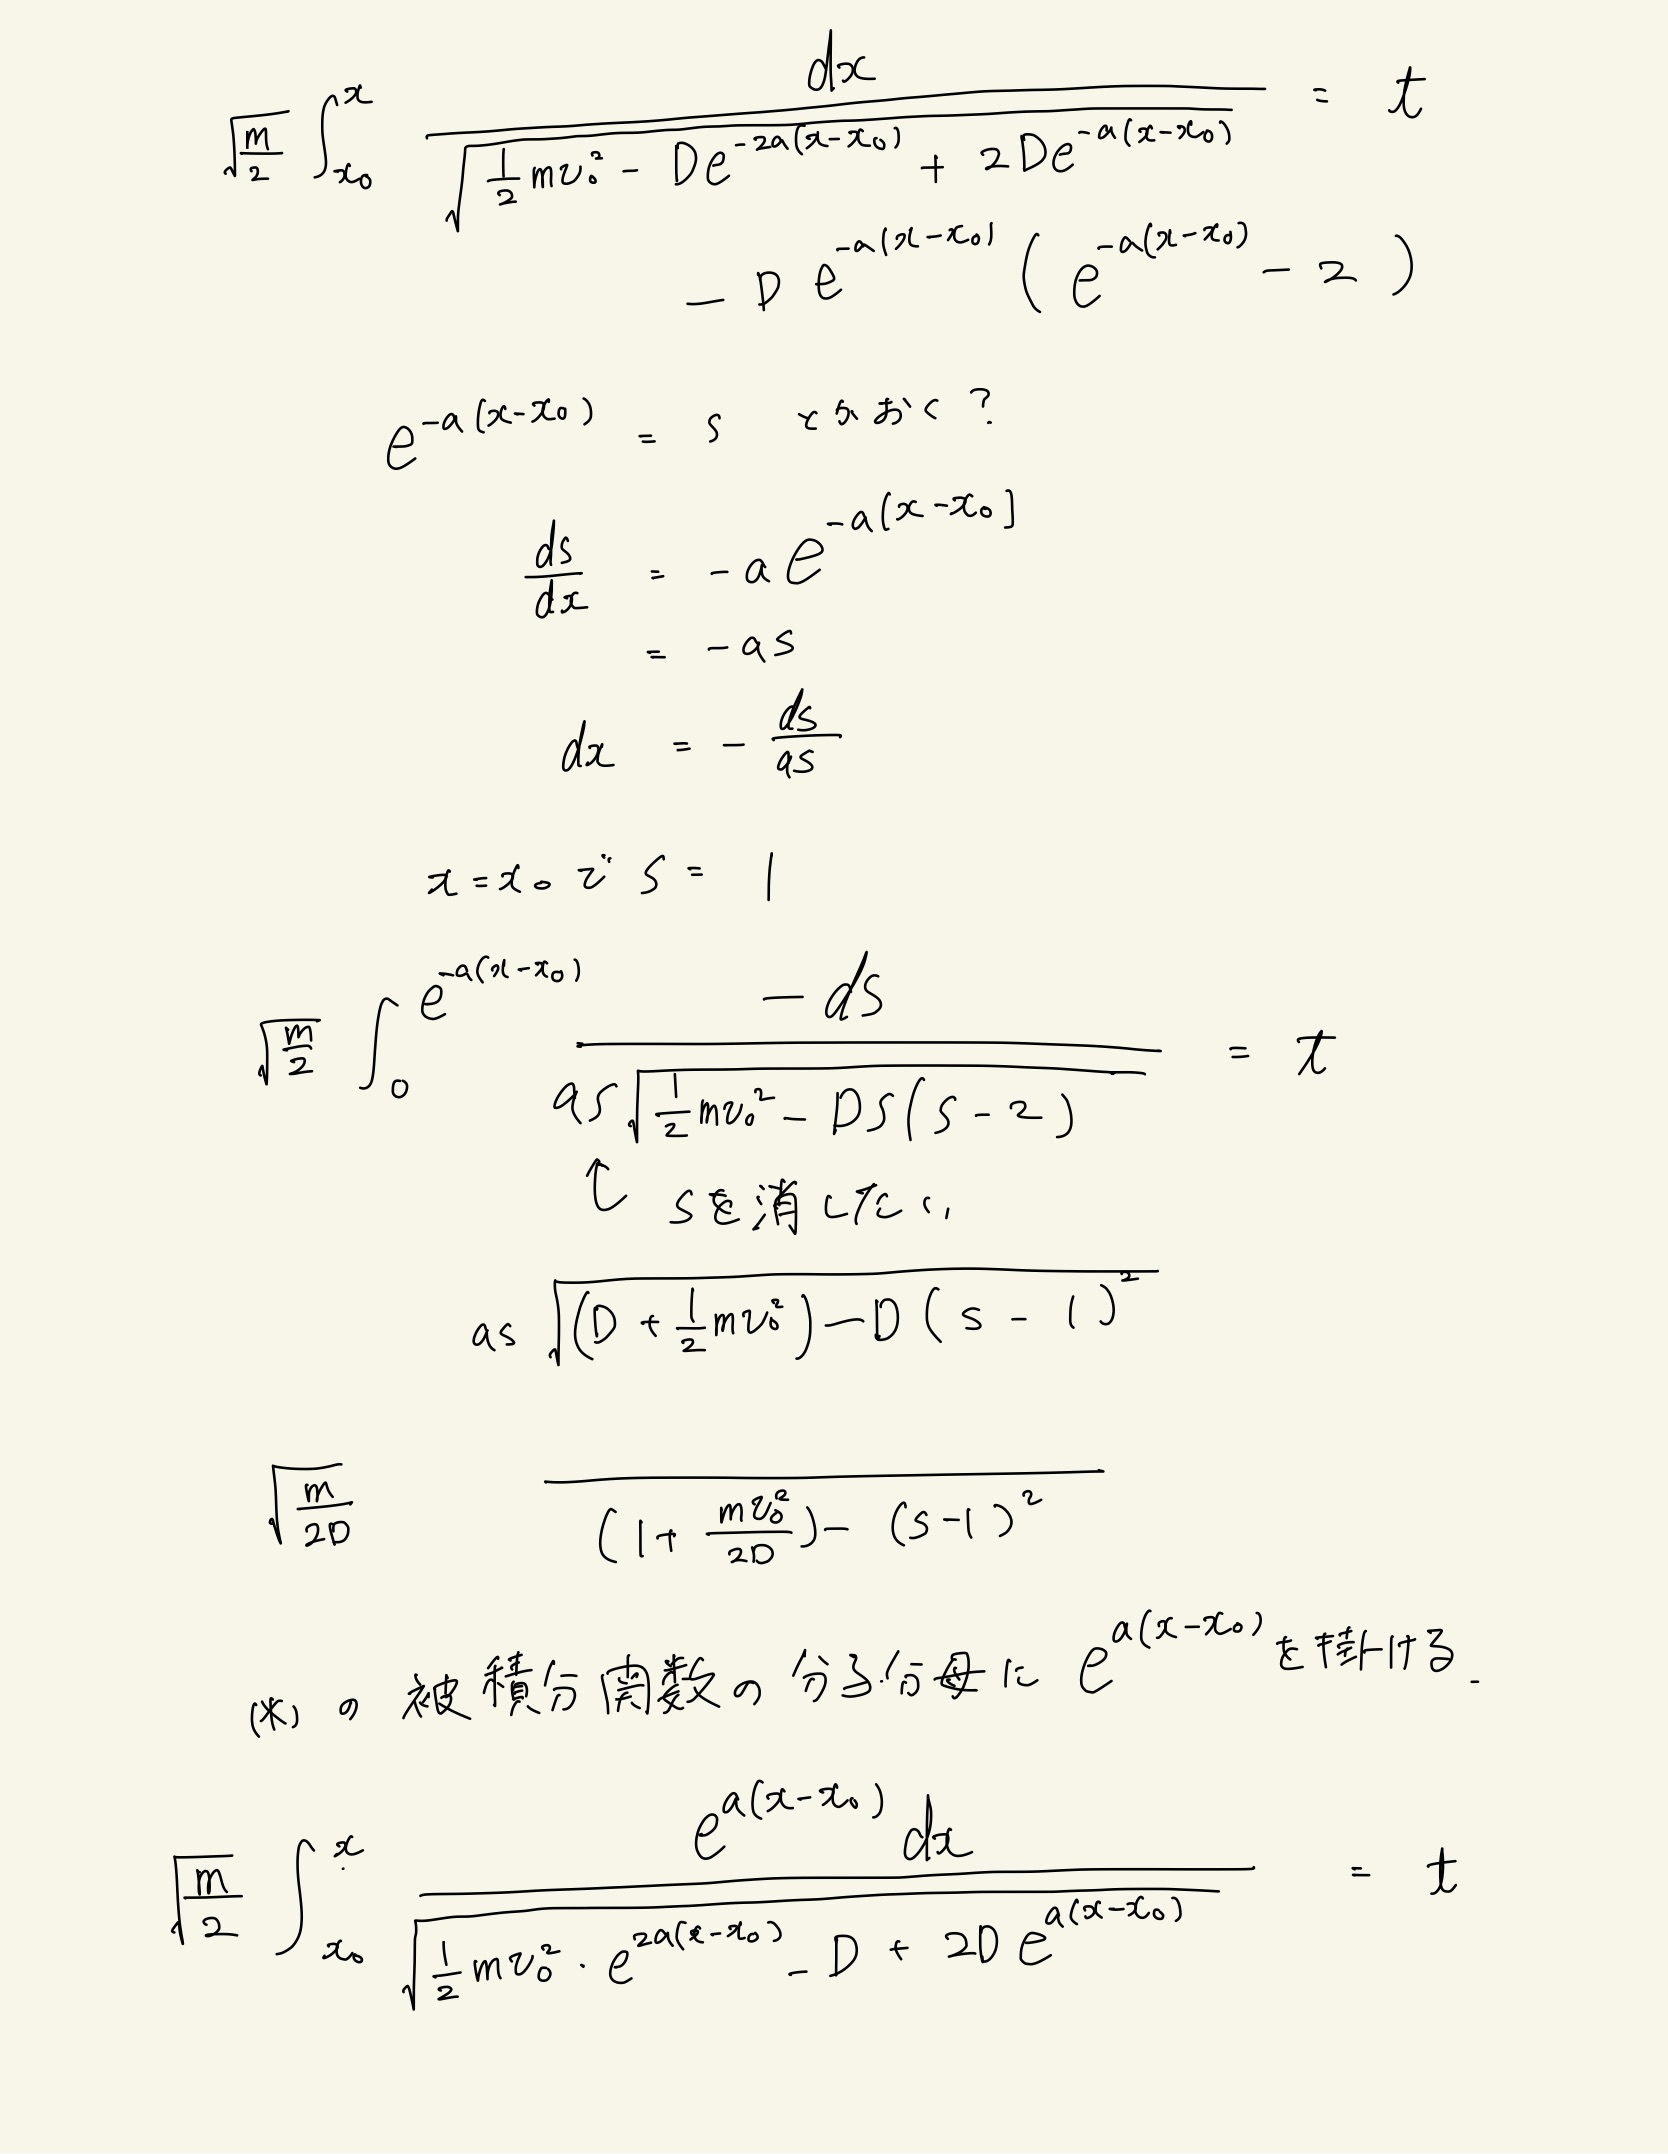 √(m/2) ∫_{x₀}^{x} dx / √(½mv₀² - De^{-2a(x-x₀)} + 2De^{-a(x-x₀)}) = t
- D e^{-a(x-x₀)} ( e^{-a(x-x₀)} - 2 )
e^{-a(x-x₀)} = s とかおく?
ds/dx = -a e^{-a(x-x₀)}
= -as
dx = - ds/as
x = x₀ で s = 1
√(m/2) ∫_{0}^{e^{-a(x-x₀)}} -ds / as√(½mv₀² - Ds(s-2)) = t
↑ sを消したい
as √((D + ½mv₀²) - D(s-1)²)
√(m/2D) 1/((1 + mv₀²/2D) - (s-1)²)
(※)の被積分関数の分子分母に e^{a(x-x₀)} を掛ける.
√(m/2) ∫_{x₀}^{x} e^{a(x-x₀)} dx / √(½mv₀²・e^{2a(x-x₀)} - D + 2D e^{a(x-x₀)}) = t